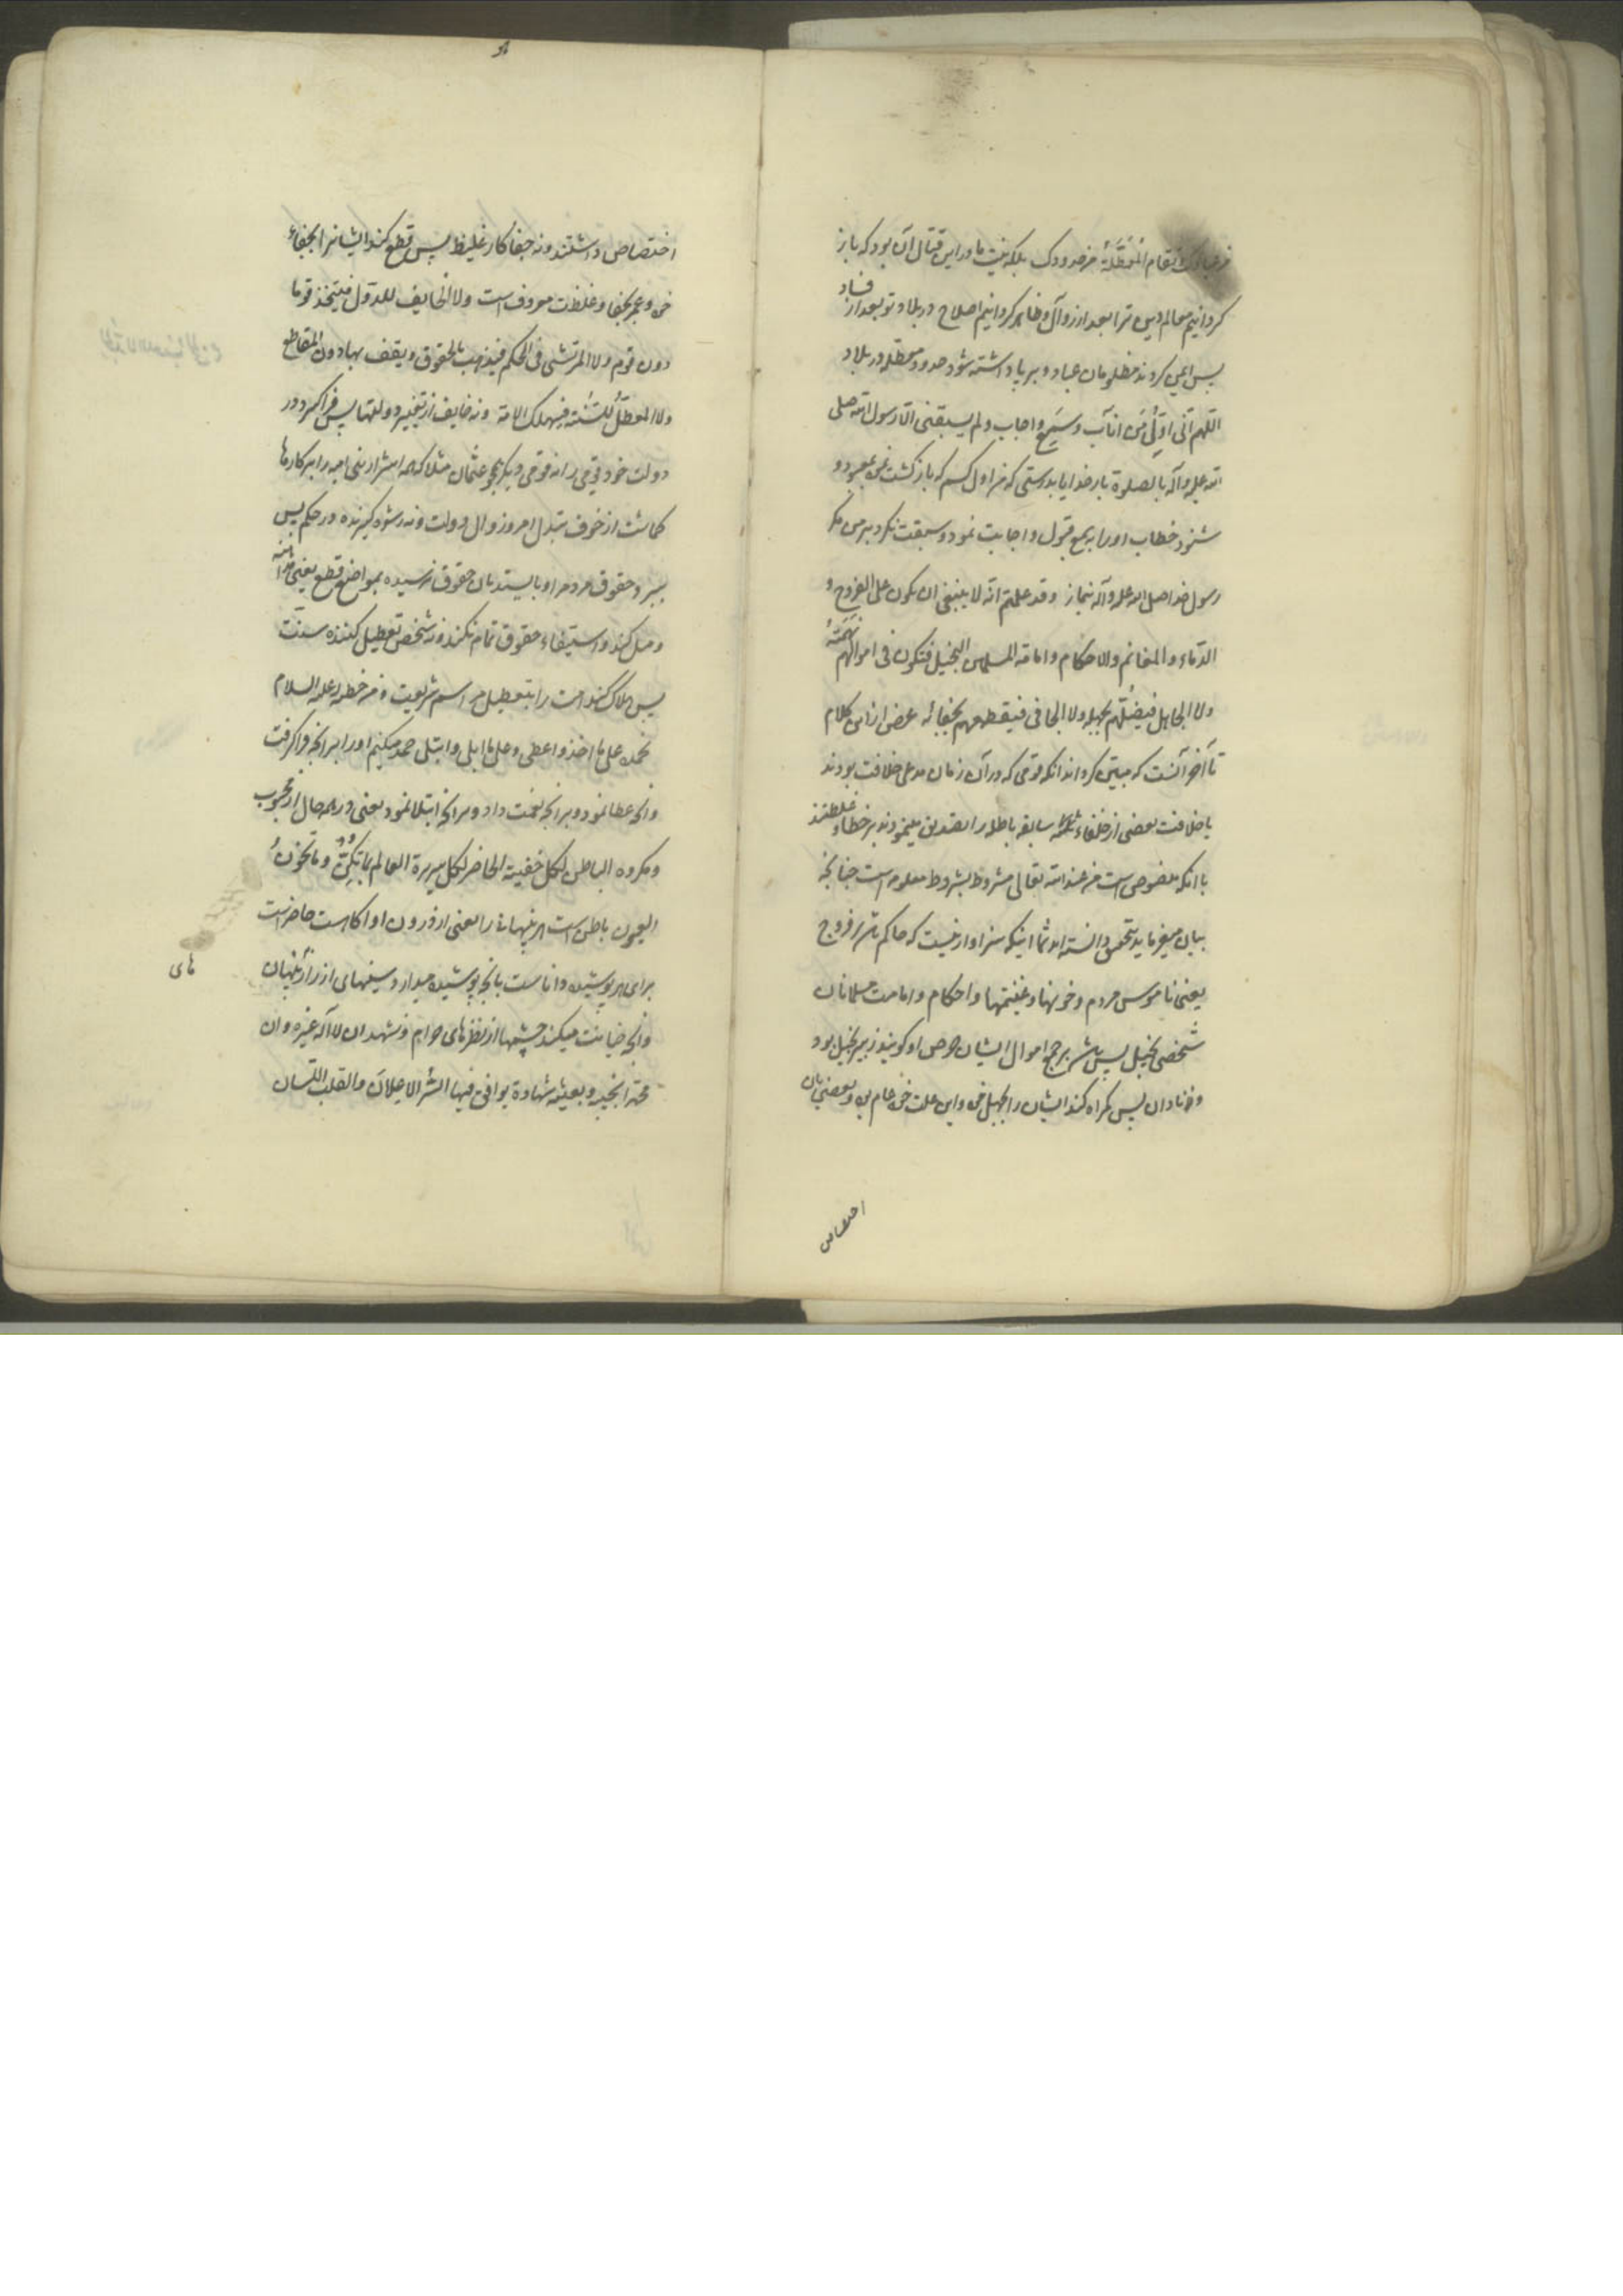 من عبادک و تقام المعطلة من حدودک بلکه نیت ما در این قتال آن بود که باز
کردانیم معالم دین ترا بعد از زوال و ظاهر کردانیم اصلاح در بلاد تو بعد از فساد
پس ایمن کردند مظلومان عباد و برپا داشته شود حدود معطله در بلاد
اللهم انی اوّل من اناب و سمع و اجاب و لم یسبقنی الا رسول الله صلی
الله علیه و آله بالصلوة بار خدایا بدرستی که من اول کسم که بازکشت بمعبود و
شنود خطاب او را بسمع قبول و اجابت نمود و سبقت نکرد بر من مکر
رسول خدا صلی الله علیه و آله بنماز و قد علمتم انه لا ینبغی ان یکون علی الفروج و
الدّماء و المغانم و الاحکام و امامة المسلمین البخیل فتکون فی اموالهم نهمته
و لا الجاهل فیضلّهم بجهله و لا الجافی فیقطعهم بجفائه غرض از این کلام
تا آخر آنست که مبین کرداند انکه قومی که در آن زمان مدعی خلافت بودند
یا خلافت بعضی از خلفاء ثلثه سابقه باطله را تصدیق مینمودند بر خطا و غلطند
با انکه منصوص است من عند الله تعالی مشروط بشروط معلومه است چنانچه
بیان میفرماید بتحقیق دانسته اید شما اینکه سزاوار نیست که حاکم باشد بر فروج
یعنی ناموس مردم و خونها و غنیمتها و احکام و امامت مسلمانان
شخصی بخیل پس باشد بر جمع اموال ایشان حرص او کویند زبیر بخیل بود
و نه نادان پس کمراه کند ایشان را بجهل خود و این علت خود عام بود و بعضی بان
اختصاص
اختصاص داشتند و نه جفاکار غلیظ پس قطع کند ایشانرا بجفاء
خود و عمر بجفا و غلظت معروف است و لا الخایف للدّول فیتخذ قوما
دون قوم و لا المرتشی فی الحکم فیذهب بالحقوق و یقف بها دون المقاطع
و لا المعطّل للسّنّة فیهلک الامّة و نه خایف از تغییر دولتها پس فراکیرد در
دولت خود قومی را نه قومی دیکر همچو عثمان مثلا که همه اشرار بنی امیه را بر کارها
کماشت از خوف تبدل امر و زوال دولت و نه رشوه کیرنده در حکم پس
ببرد حقوق مردم را و بایستد بان حقوق نرسیده بمواضع قطع یعنی مداهنه
و میل کند و استیفاء حقوق تمام نکند و نه شخص تعطیل کننده سنت
پس هلاک کند امت را بتعطیل مراسم شریعت و من خطبه له علیه السلام
نحمده علی ما اخذ و اعطی و علی ما ابلی و ابتلی حمد میکنیم او را بر انچه فراکرفت
و انچه عطا نمود و بر انچه نعمت داد و بر انچه ابتلا نمود یعنی در همه حال از محبوب
و مکروه الباطن لکل خفیة الحاضر لکل سریرة العالم بما تکنّ الصدور و ما تخون
العیون باطن است هر پنهانی را یعنی از درون او اکاهست حاضر است
برای هر پوشیده داناست بانچه پوشیده میدارد سینهای از رازهای پنهان
و انچه خیانت میکند چشمها از نظرهای حرام و نشهد ان لا اله غیره و ان
محمدا نجیبه و بعیثه شهادة یوافق فیها السّر الاعلان و القلب اللسان
های